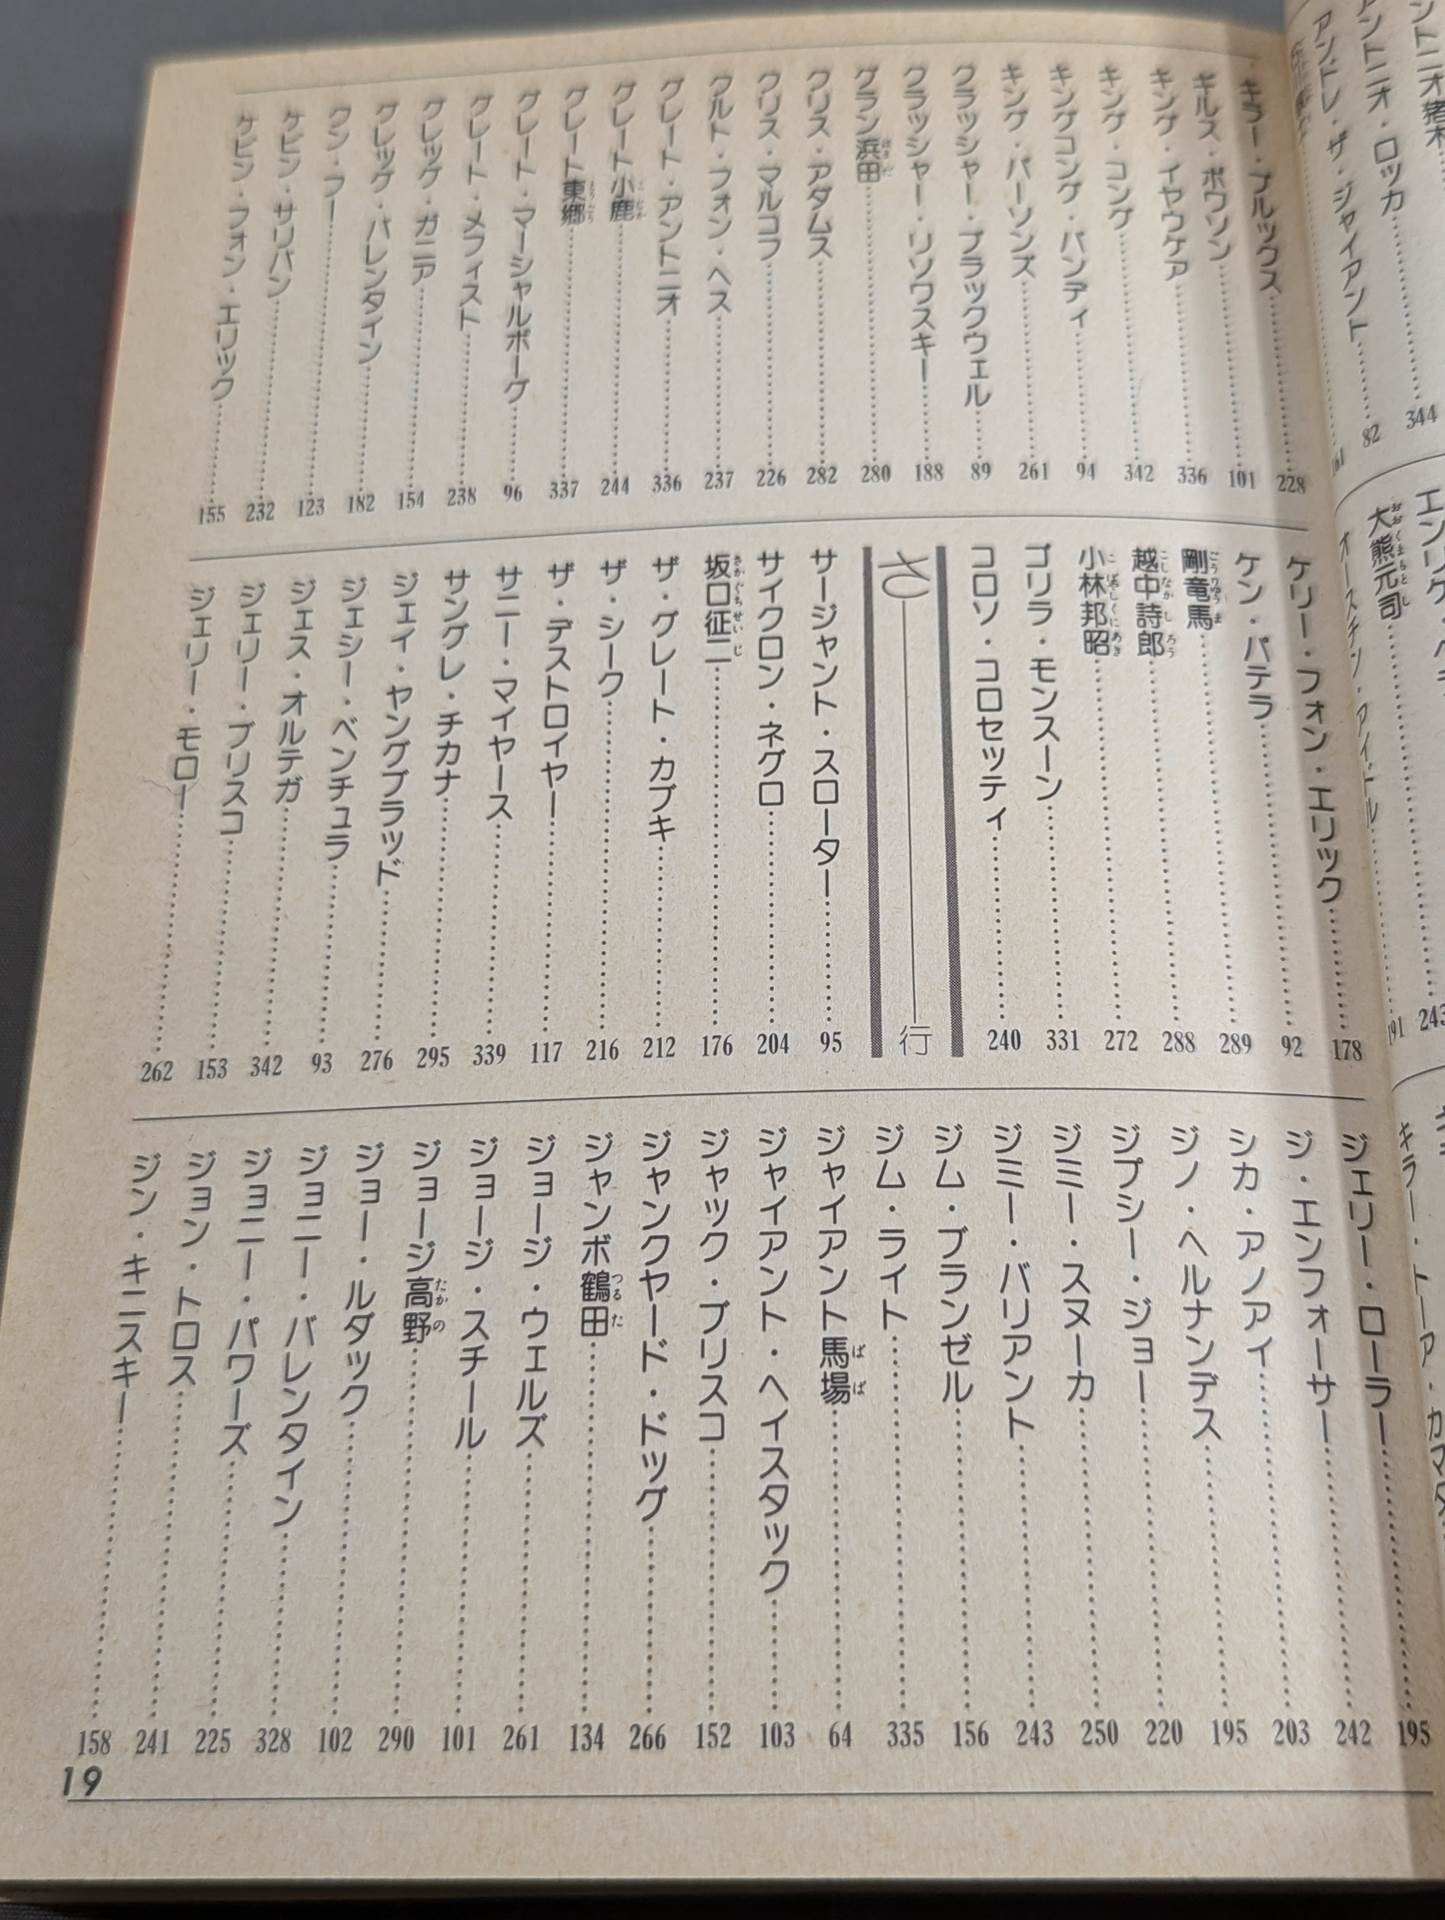 キラー・ブルックス 228
ギルス・ポワソン 101
キング・イヤウケア 336
キング・コング 342
キングコング・バンディ 94
キング・パーソンズ 261
クラッシャー・ブラックウェル 89
クラッシャー・リソワスキー 188
グラン浜田 280
クリス・アダムス 282
クリス・マルコフ 226
クルト・フォン・ヘス 237
グレート・アントニオ 336
グレート小鹿 244
グレート東郷 337
グレート・マーシャルボーグ 96
グレート・メフィスト 238
グレッグ・ガニア 154
グレッグ・バレンタイン 182
クン・フー 123
ケビン・サリバン 232
ケビン・フォン・エリック 155
ケリー・フォン・エリック 178
ケン・パテラ 92
剛竜馬 289
越中詩郎 288
小林邦昭 272
ゴリラ・モンスーン 331
コロソ・コロセッティ 240
さ行
サージャント・スローター 95
サイクロン・ネグロ 204
坂口征二 176
ザ・グレート・カブキ 212
ザ・シーク 216
ザ・デストロイヤー 117
サニー・マイヤース 339
サングレ・チカナ 295
ジェイ・ヤングブラッド 276
ジェシー・ベンチュラ 93
ジェス・オルテガ 342
ジェリー・ブリスコ 153
ジェリー・モロー 262
ジェリー・ローラー 242
ジ・エンフォーサー 203
シカ・アノアイ 195
ジノ・ヘルナンデス 220
ジプシー・ジョー 250
ジミー・スヌーカ 243
ジミー・バリアント 156
ジム・ブランゼル 335
ジム・ライト 64
ジャイアント馬場
ジャイアント・ヘイスタック 103
ジャック・ブリスコ 152
ジャンクヤード・ドッグ 266
ジャンボ鶴田 134
ジョージ・ウェルズ 261
ジョージ・スチール 101
ジョージ高野 290
ジョー・ルダック 102
ジョニー・バレンタイン 328
ジョニー・パワーズ 225
ジョン・トロス 241
ジン・キニスキー 158
19
アンドレ・ザ・ジャイアント 82
アントニオ・ロッカ 344
大熊元司
191
243
195